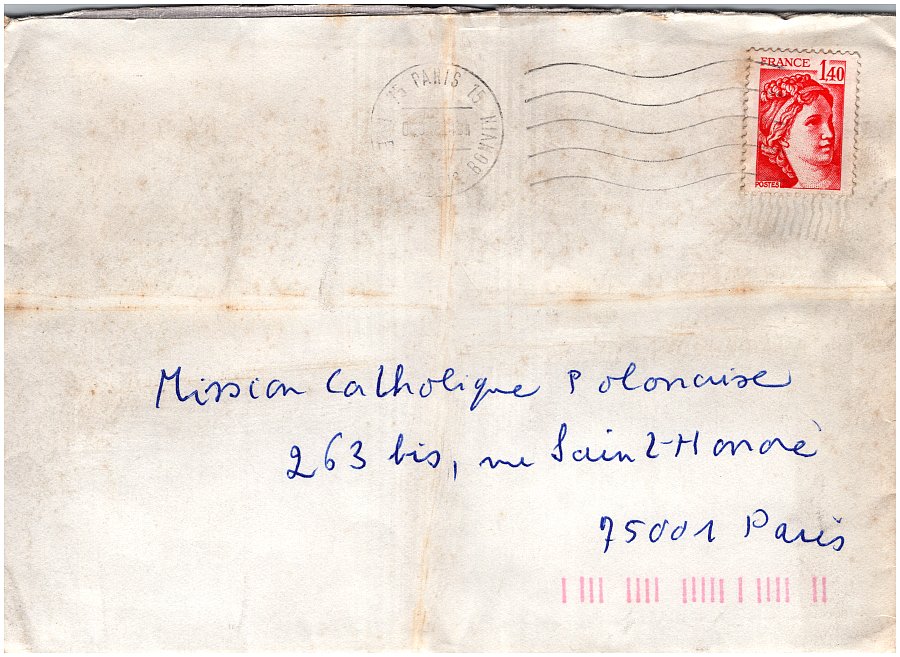 75 PARIS 75
R BONVIN
FRANCE 1,40
POSTES
Mission Catholique Polonaise
263 bis, rue Saint-Honoré
75001 Paris